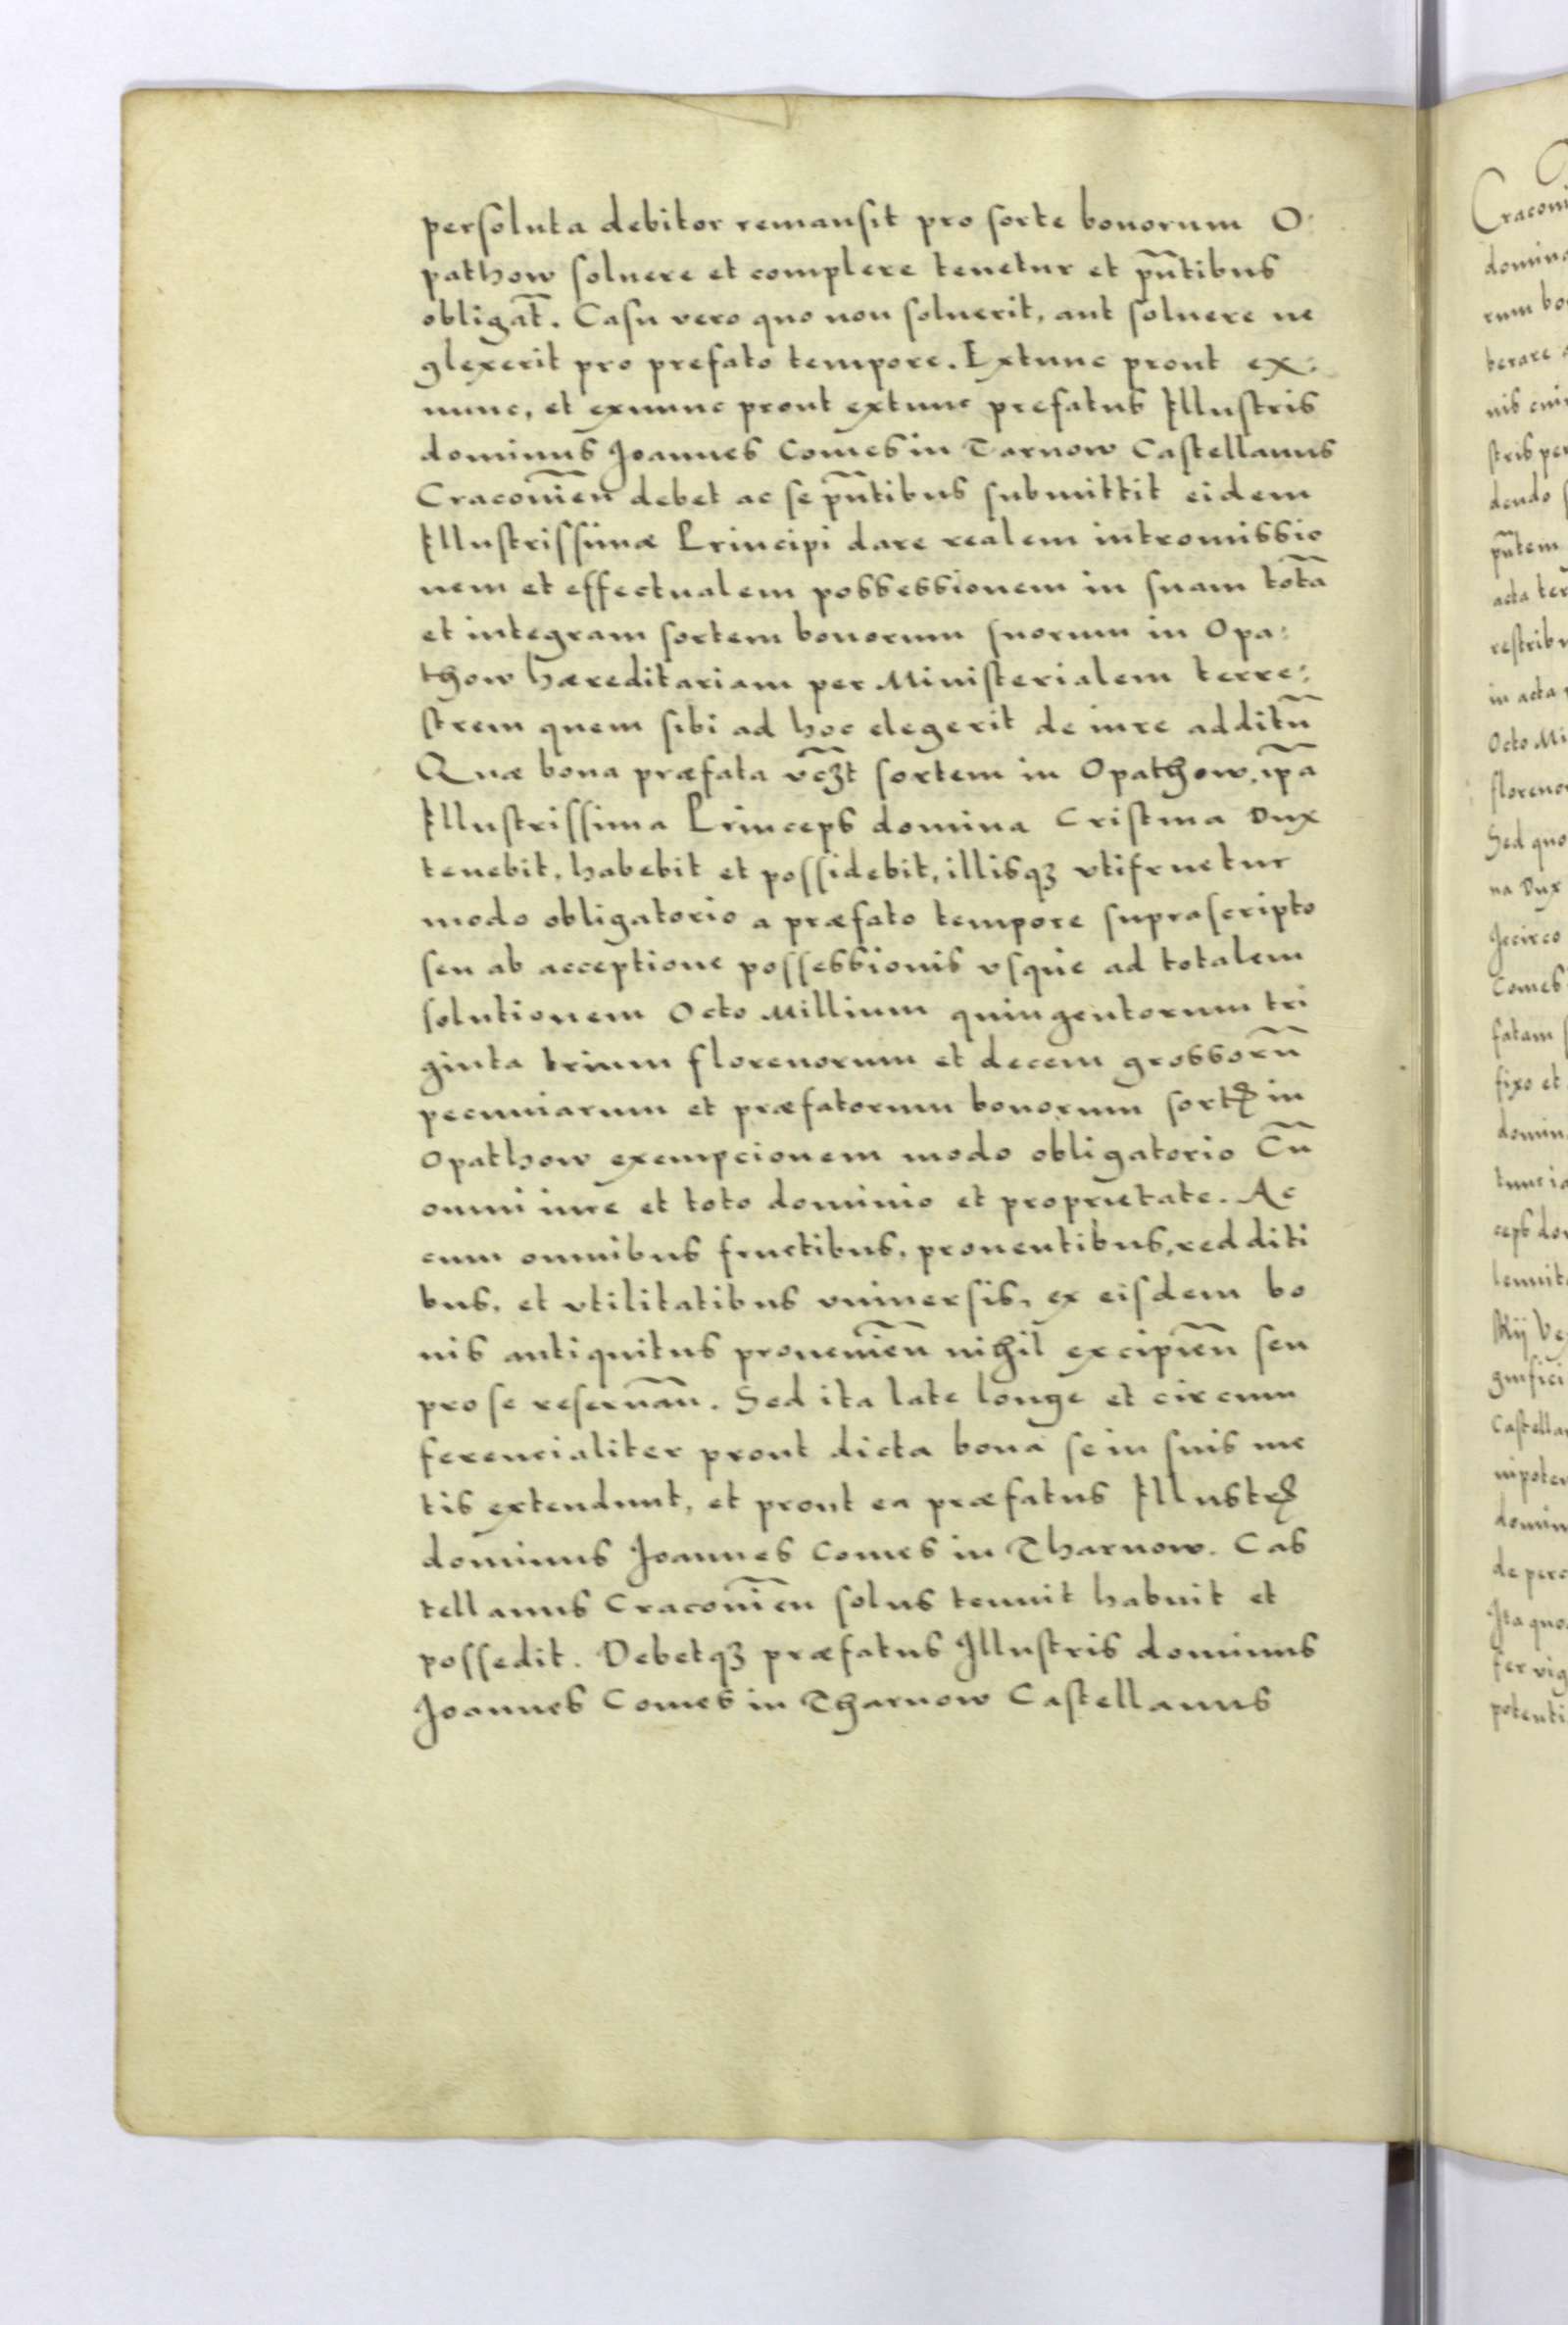 persoluta debitor remansit pro sorte bonorum O:
pathow soluere et complere tenetur et pn̄tibus
obligat̄. Casu vero quo non soluerit, aut soluere ne
glexerit pro prefato tempore. Extunc prout ex:
nunc, et exnunc prout extunc prefatus Illustris
dominus Joannes Comes in Tarnow Castellanus
Craconien̄ debet ac se pn̄tibus submittit eidem
Illustrissimæ Principi dare realem intromissio
nem et effectualem possessionem in suam totā
et integram sortem bonorum suorum in Opa:
thow hæreditariam per Ministerialem terre:
strem quem sibi ad hoc elegerit de iure additū
Quæ bona præfata vcꝫt sortem in Opathow, ip̄a
Illustrissima Princeps domina Cristina Dux
tenebit, habebit et possidebit, illisqꝫ vtifruetur
modo obligatorio a præfato tempore suprascripto
seu ab acceptione possessionis vsque ad totalem
solutionem Octo Millium quingentorum tri
ginta trium florenorum et decem grossorū
pecuniarum et præfatorum bonorum sortꝭ in
Opathow exempcionem modo obligatorio Cū
omni iure et toto dominio et proprietate. Ac
cum omnibus fructibus, prouentibus, redditi
bus, et vtilitatibus vniuersis, ex eisdem bo
nis antiquitus prouenien̄ nihil excipien̄ seu
pro se reseruan̄. Sed ita late longe et circum
ferencialiter prout dicta bona se in suis me
tis extendunt, et prout ea præfatus Illustrꝭ
dominus Joannes Comes in Tharnow. Cas
tellanus Craconien̄ solus tenuit habuit et
possedit. Debetqꝫ præfatus Illustris dominus
Joannes Comes in Tharnow Castellanus
domina
rum bo
terare
stris per
dendo
pn̄tem
in acta
Octo Mi
Sed quo
na Dux
Comes
fatam
fixo et
domin
ceps do
Castella
domin
de perc
Ita quo
potenti